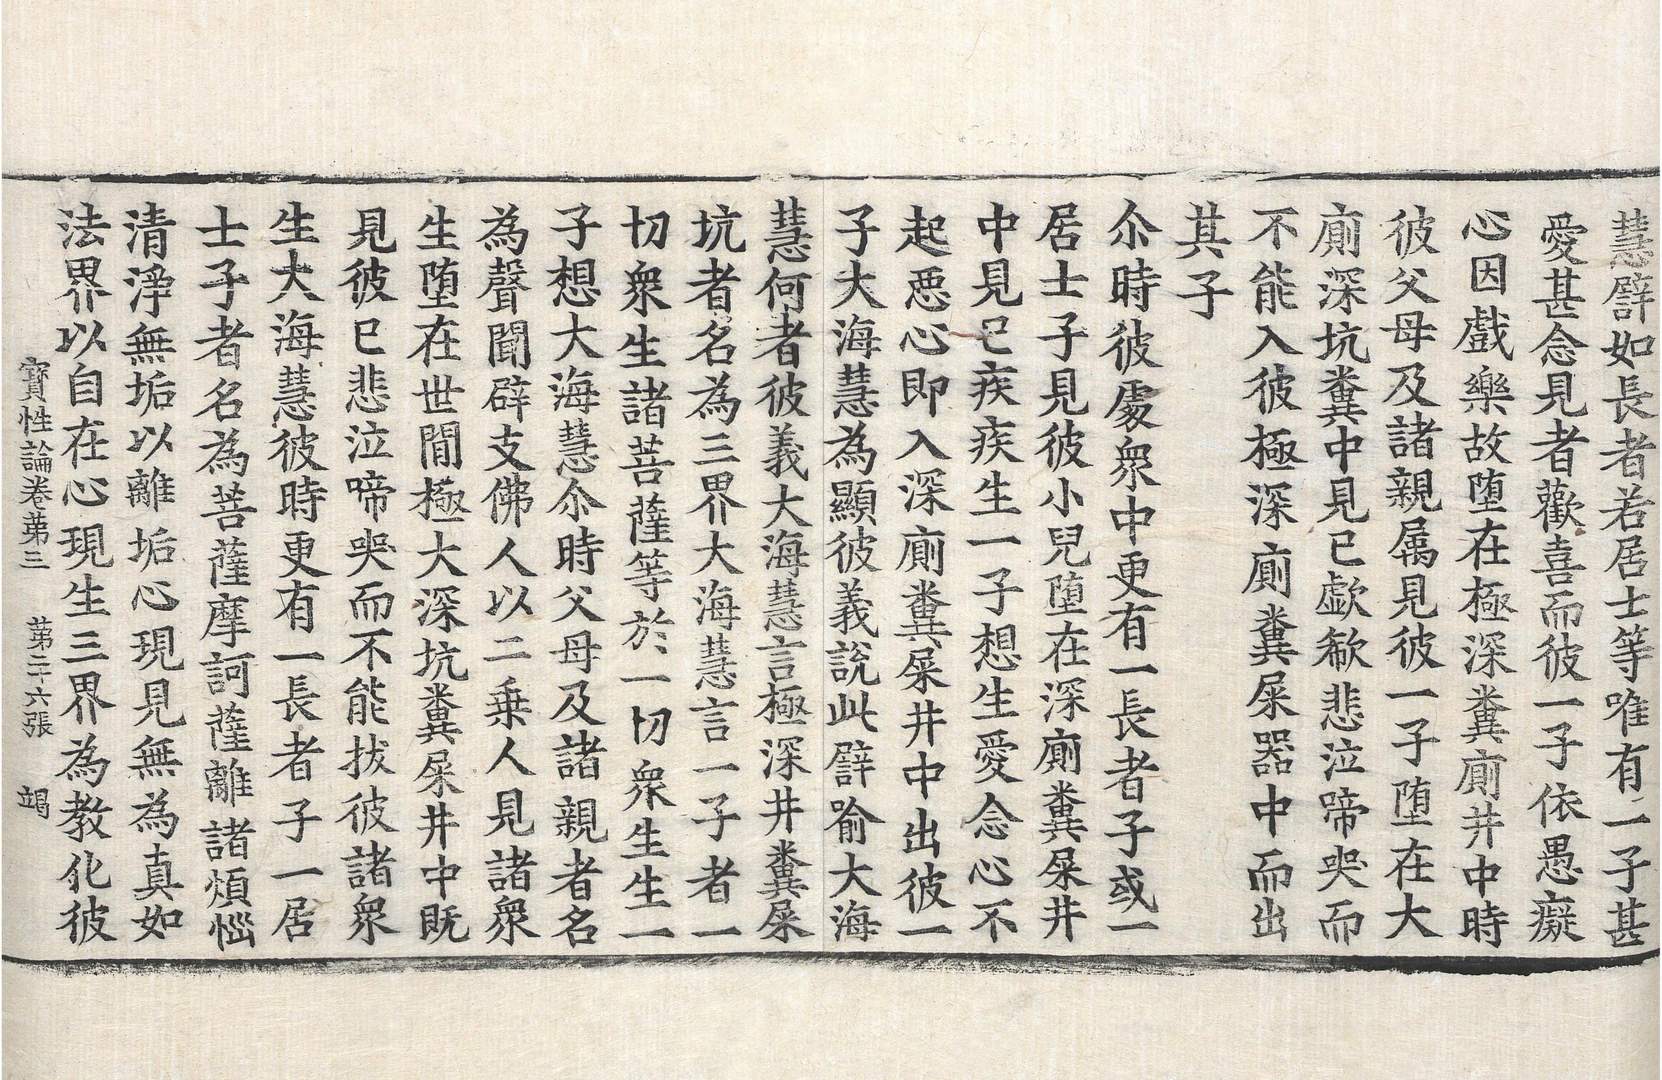 慧譬如長者若居士等唯有一子甚
愛甚念見者歡喜而彼一子依愚癡
心因戲樂故堕在極深糞廁井中時
彼父母及諸親屬見彼一子堕在大
廁深坑糞中見已歔欷悲泣啼哭而
不能入彼極深廁糞屎器中而出
其子
尒時彼處衆中更有一長者子或一
居士子見彼小兒堕在深廁糞屎井
中見已疾疾生一子想生愛念心不
起惡心即入深廁糞屎井中出彼一
子大海慧為顯彼義說此譬喻大海
慧何者彼義大海慧言極深井糞屎
坑者名為三界大海慧言一子者一
切衆生諸菩薩等於一切衆生生一
子想大海慧尒時父母及諸親者名
為聲聞辟支佛人以二乗人見諸衆
生堕在世間極大深坑糞屎井中既
見彼已悲泣啼哭而不能拔彼諸衆
生大海慧彼時更有一長者子一居
士子者名為菩薩摩訶薩離諸煩惱
清淨無垢以離垢心現見無為真如
法界以自在心現生三界為教化彼
寳性論卷苐三　苐二十六張　竭